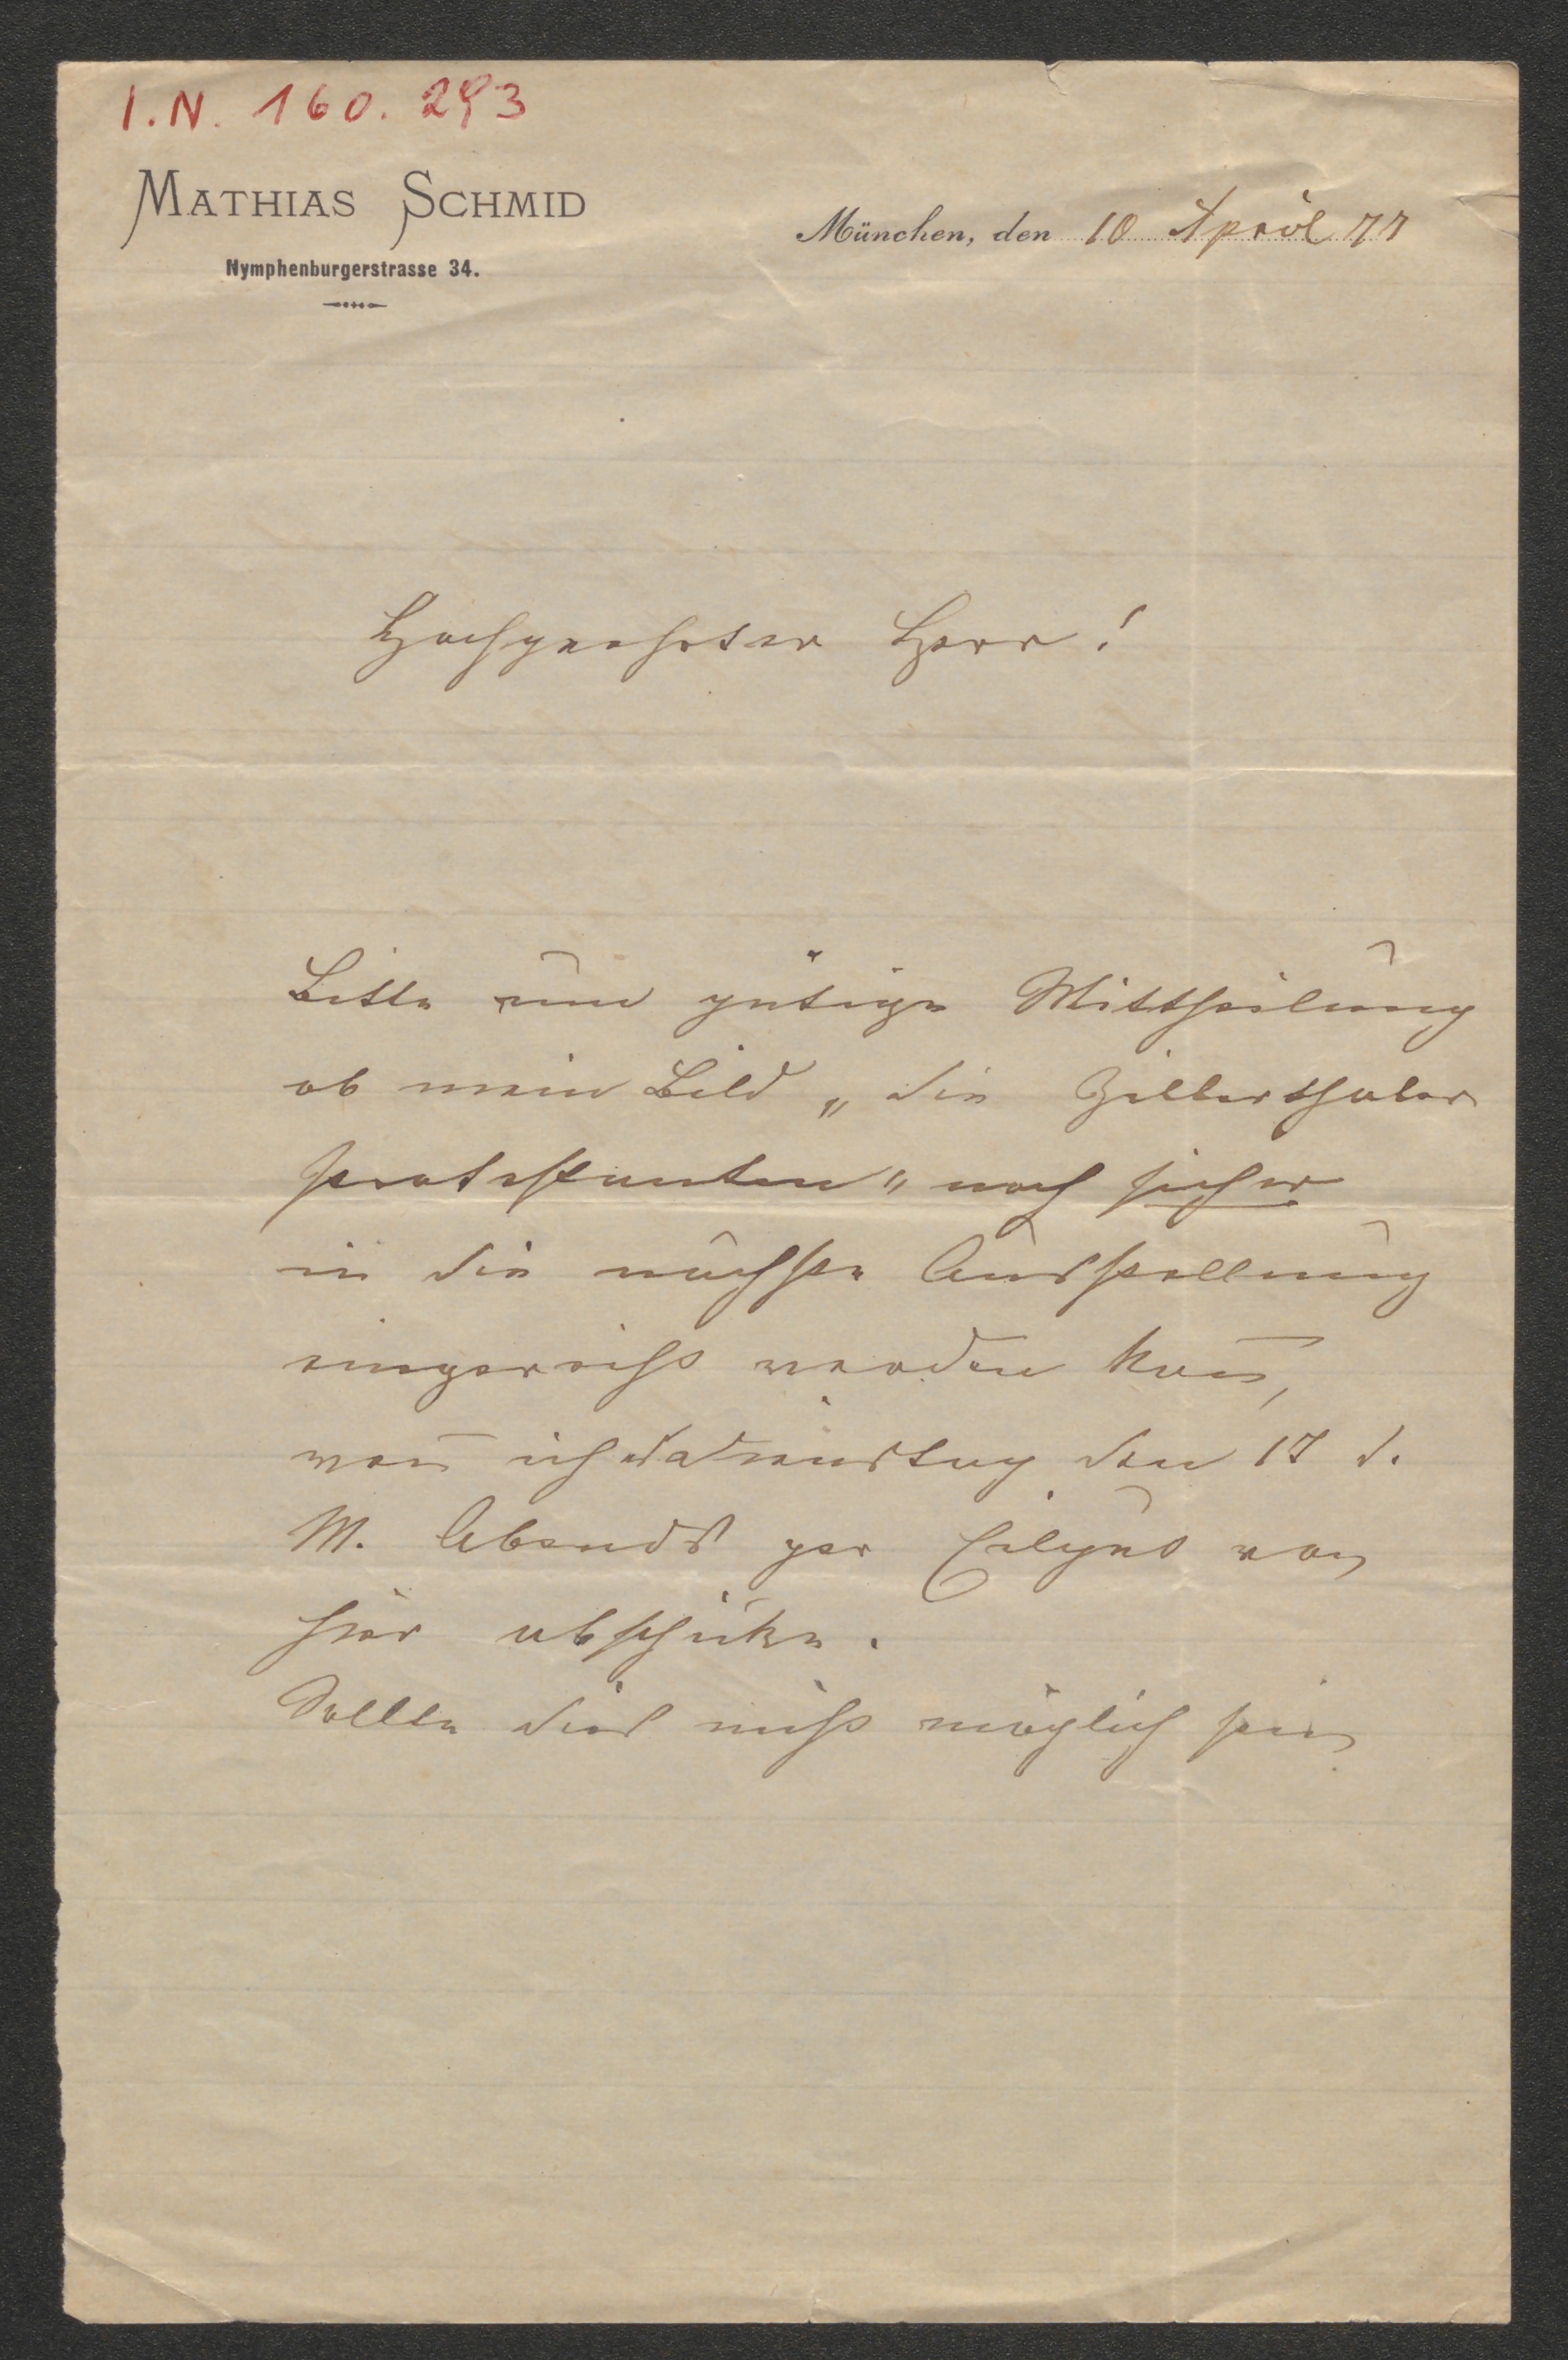 I.N. 160.293
MATHIAS SCHMID
Nymphenburgerstrasse 34.
München, den 10 April 77
Hochgeehrter Herr!
Bitte um gütige Mittheilung
ob mein Bild „die Zillerthaler
Protestanten" noch sicher
in die nächste Ausstellung
eingereiht werden kañ,
weñ ich den 17 d.
M. Abends per Eilgut von
hier abschicke.
Sollte dies nicht möglich sein